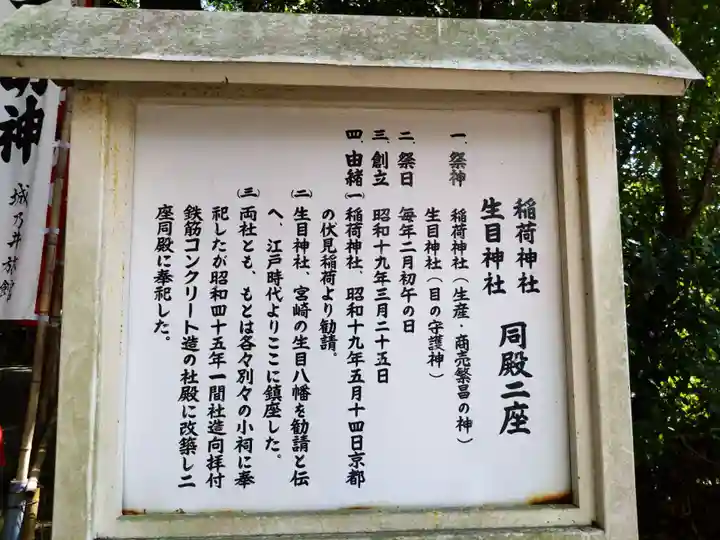 稲荷神社
生目神社
同殿二座
一、祭神
稲荷神社(生産・商売繁昌の神)
生目神社(目の守護神)
二、祭日 毎年二月初午の日
三、創立 昭和十九年三月二十五日
四、由緒㈠稲荷神社、昭和十九年五月十四日京都
の伏見稲荷より勧請。
㈡生目神社、宮崎の生目八幡を勧請と伝
へ、江戸時代よりここに鎮座した。
㈢両社とも、もとは各々別々の小祠に奉
祀したが昭和四十五年一間社造向拝付
鉄筋コンクリート造の社殿に改築し二
座同殿に奉祀した。
明神
城乃井旅館